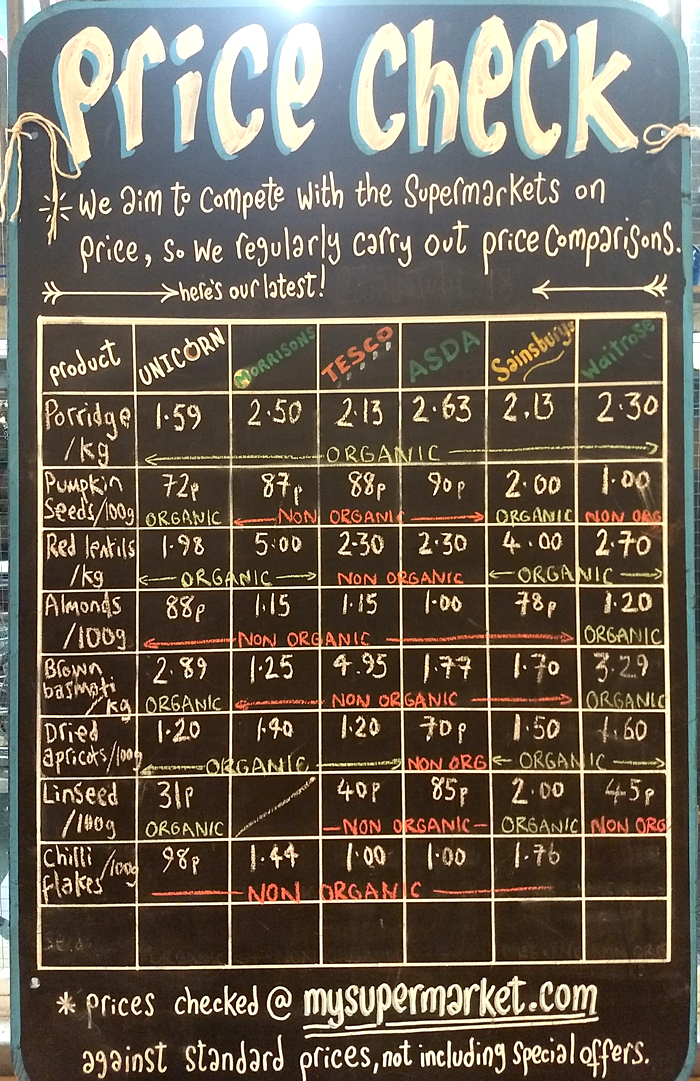 Price Check
We aim to compete with the Supermarkets on
price, so we regularly carry out price comparisons.
here's our latest!
product UNICORN MORRISONS TESCO ASDA Sainsburys Waitrose
Porridge 1.59 2.50 2.13 2.63 2.13 2.30
/kg ORGANIC
Pumpkin 72p 87p 88p 90p 2.00 1.00
Seeds/100g ORGANIC NON ORGANIC ORGANIC NON ORG
Red lentils 1.98 5.00 2.30 2.30 4.00 2.70
/kg ORGANIC NON ORGANIC ORGANIC
Almonds 88p 1.15 1.15 1.00 78p 1.20
/100g NON ORGANIC ORGANIC
Brown 2.89 1.25 4.95 1.77 1.70 3.29
basmati /kg ORGANIC NON ORGANIC ORGANIC
Dried 1.20 1.40 1.20 70p 1.50 1.60
apricots/100g ORGANIC NON ORG ORGANIC
Linseed 31p 40p 85p 2.00 45p
/100g ORGANIC NON ORGANIC ORGANIC NON ORG
Chilli /100g 98p 1.44 1.00 1.00 1.76
flakes NON ORGANIC
* prices checked @ mysupermarket.com
against standard prices, not including special offers.